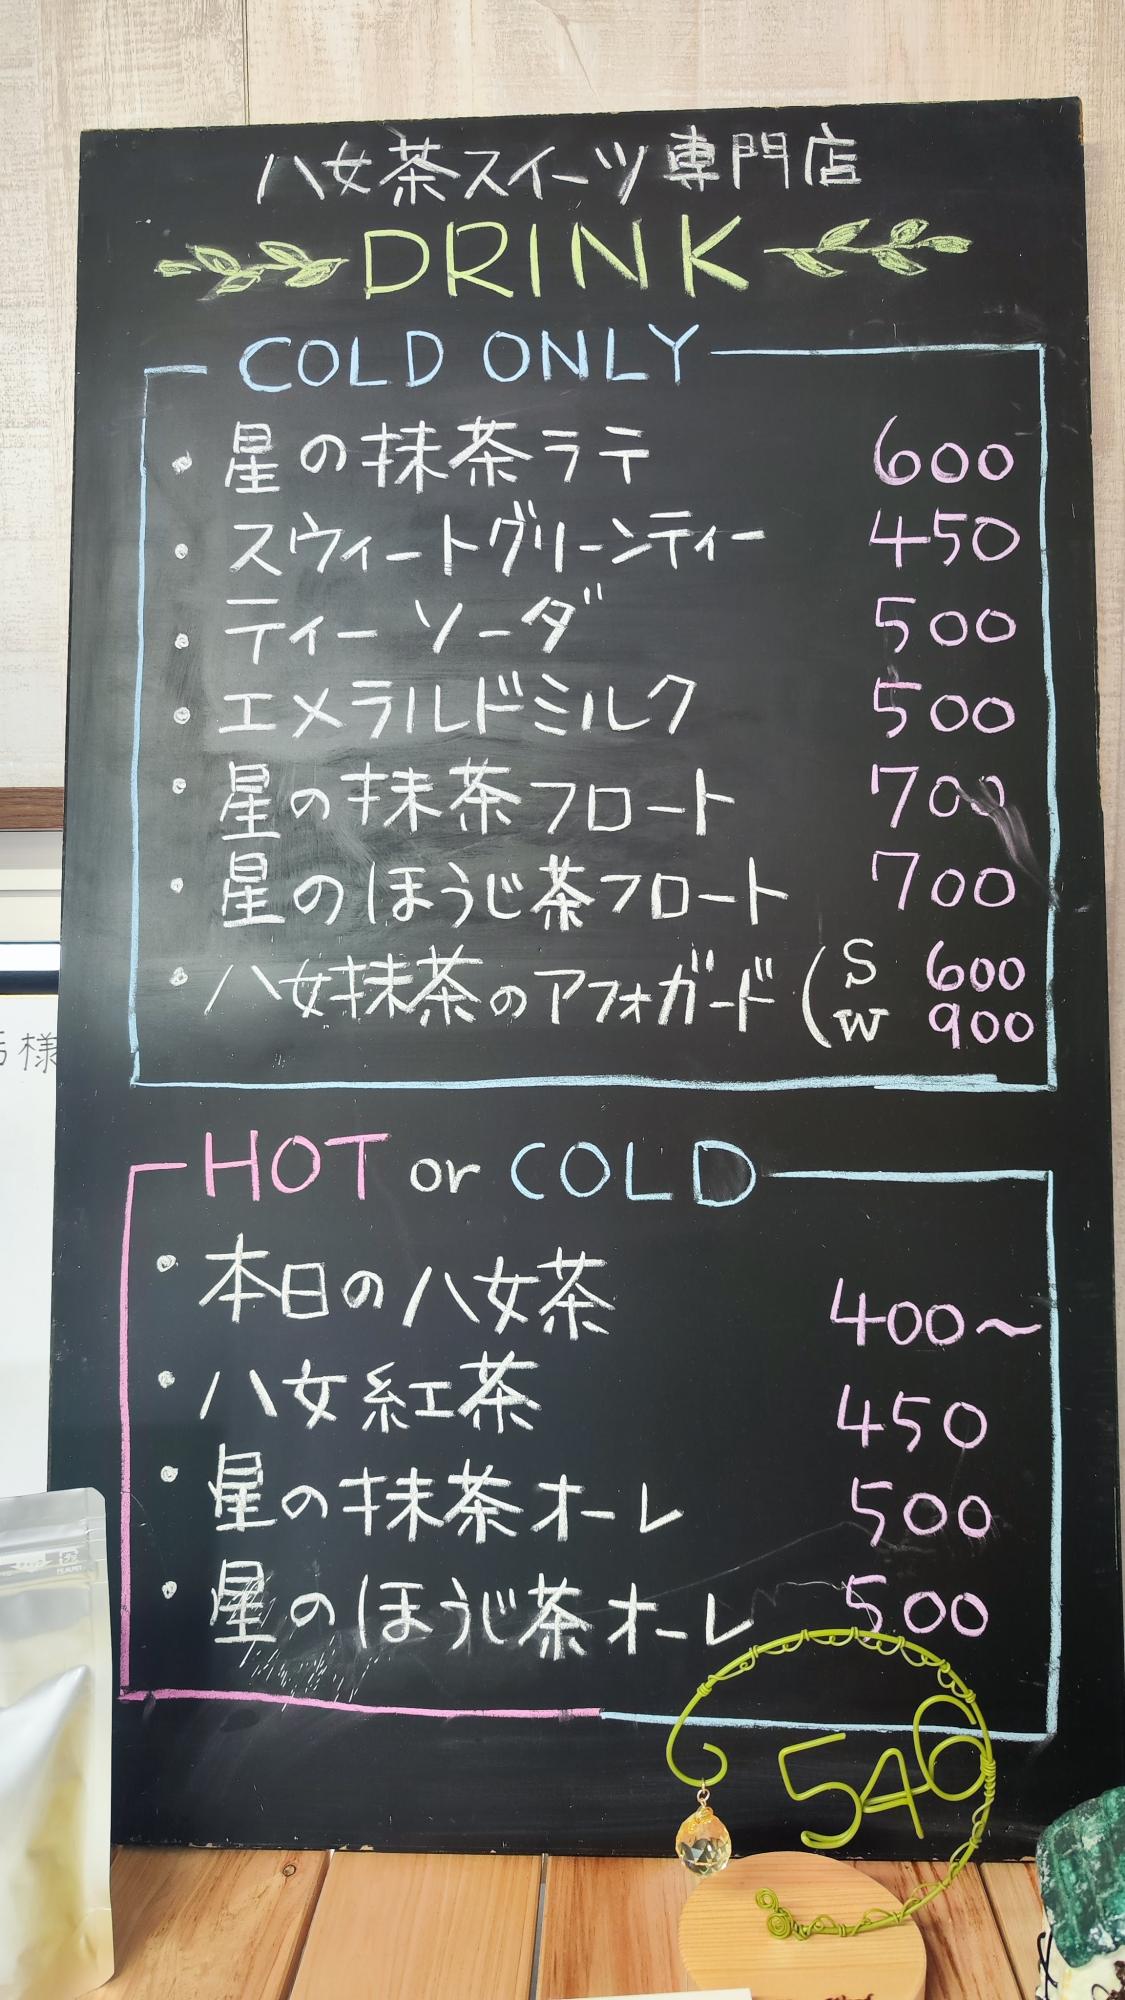 八女茶スイーツ専門店
DRINK
COLD ONLY
・星の抹茶ラテ 600
・スウィートグリーンティー 450
・ティーソーダ 500
・エメラルドミルク 500
・星の抹茶フロート 700
・星のほうじ茶フロート 700
・八女抹茶のアフォガード (S 600
W 900
HOT or COLD
・本日の八女茶 400〜
・八女紅茶 450
・星の抹茶オーレ 500
・星のほうじ茶オーレ 500
546
様